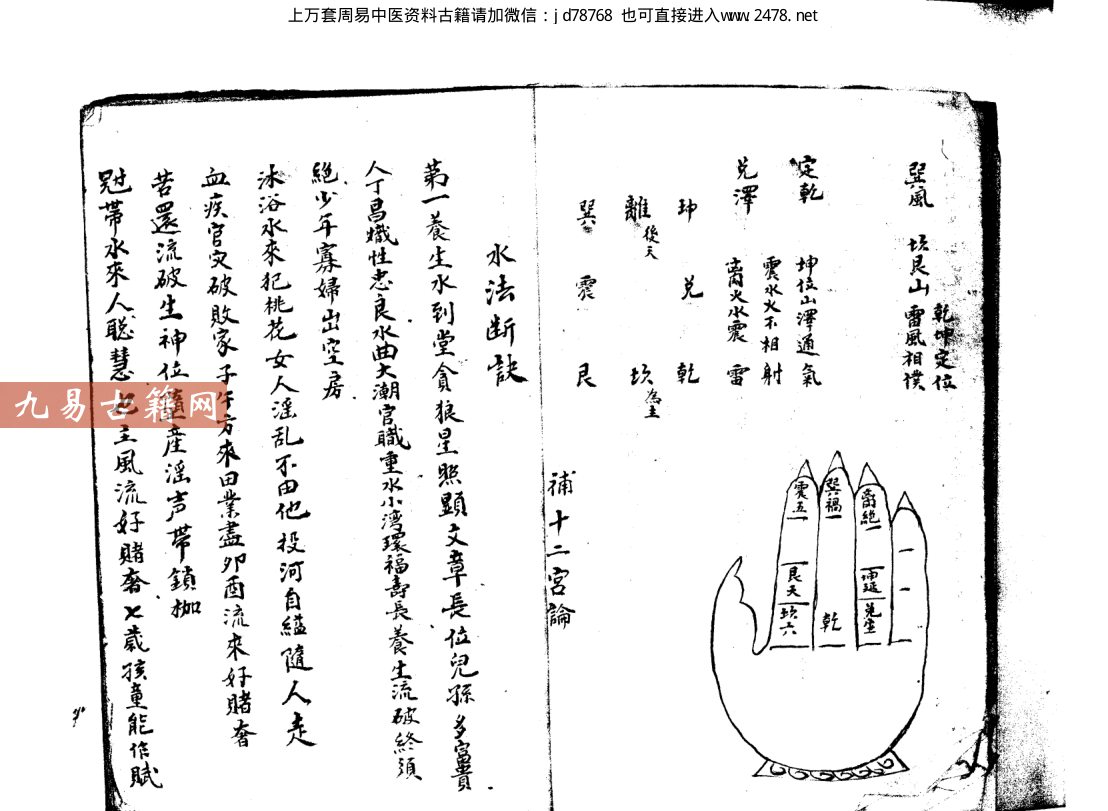 上万套周易中医资料古籍请加微信：jd78768 也可直接进入www.2478.net
巽風 坎艮山 雷風相撲
乾坤定位
定乾 坤位山澤通氣
震水火不相射
兌澤 离火水震雷
坤 兌 乾
離 後天 坎 為主
巽 震 艮
震五
巽禍
离絶
艮天
坤延
坎六
乾
兑生
一
一
補十二宮論
水法断訣
第一養生水到堂貪狼星照顯文章長位兒孫多富貴
人丁昌熾性忠良水曲大潮官職重水小湾環福壽長養生流破終須
絕少年寡婦出空房
沐浴水來犯桃花女人淫乱不由他投河自縊隨人走
血疾官灾破敗家子午方來田業盡卯酉流來好賭奢
苦還流破生神位墮産淫声帶鎖枷
冠帶水來人聰慧也主風流好賭奢七歲孩童能作賦
九易古籍网